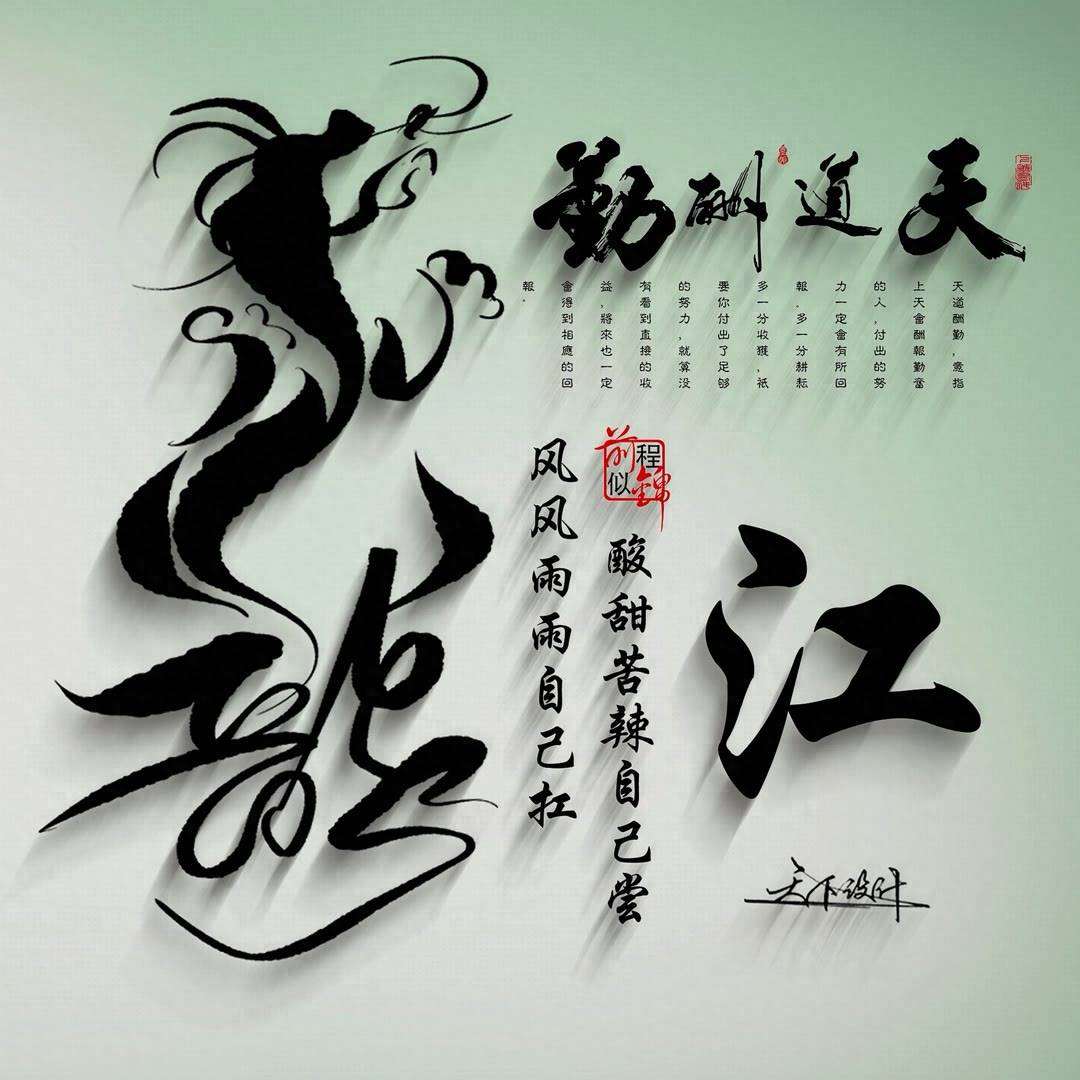 天道酬勤
天道酬勤，意指
上天會酬報勤奮
的人，付出的努
力一定會有所回
報。多一分耕耘
多一分收獲，祇
要你付出了足够
的努力，就算没
有看到直接的收
益，將來也一定
會得到相應的回
報。
江
前程似錦
酸甜苦辣自己尝
风风雨雨自己扛
龍
天下设计